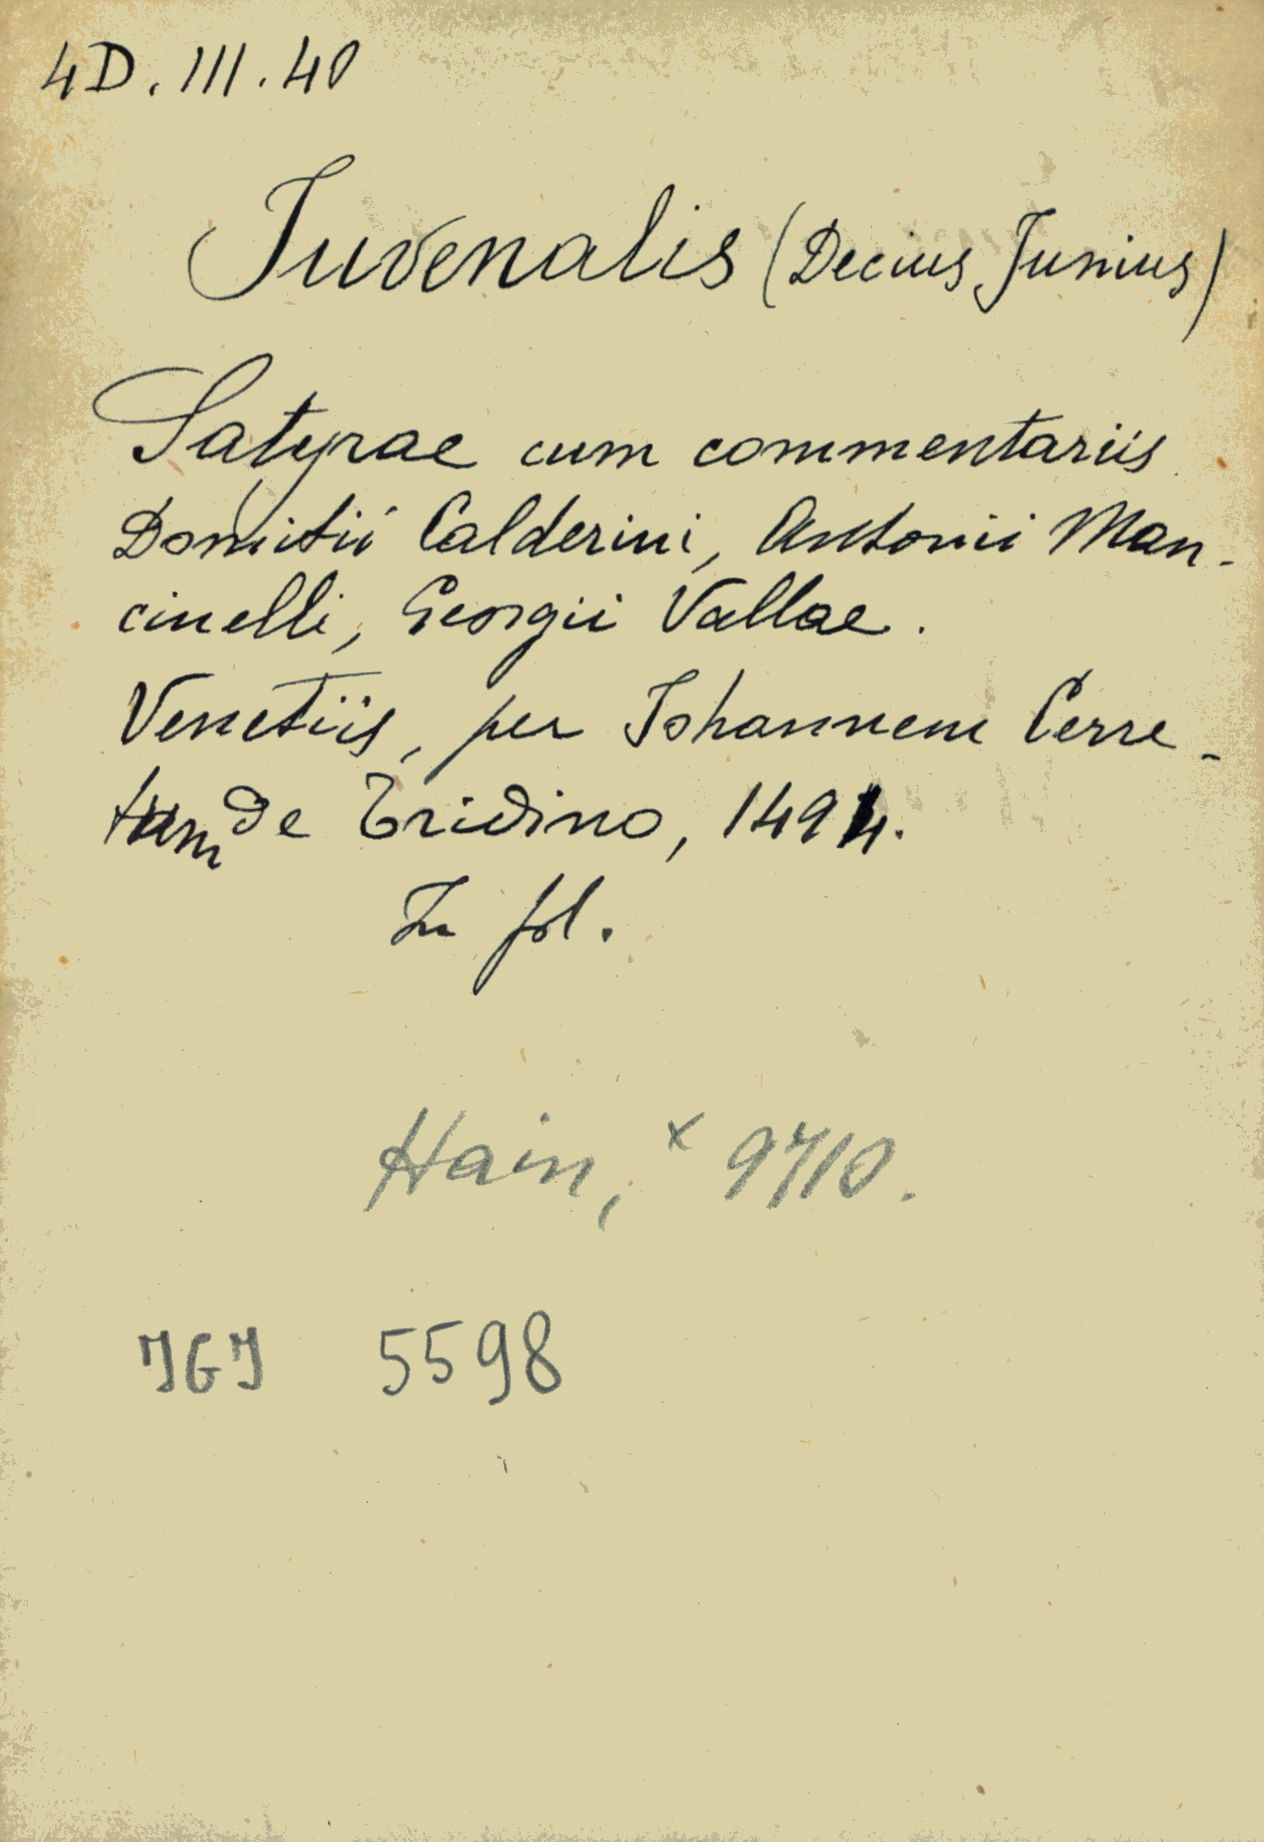 4D. III. 40
Juvenalis (Decius Junius)
Satyrae cum commentariis
Domitii Calderini, Antonii Man-
cinelli, Georgii Vallae.
Venetiis, per Johannem Cerre-
tum de Tridino, 1494.
In fol.
Hain, x 9710.
IGI 5598